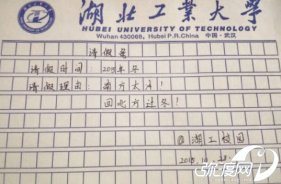 湖北工業大學
HUBEI UNIVERSITY OF TECHNOLOGY
Wuhan 430068, Hubei P.R.China 中国·武汉
请假条
请假时间：2015年冬
请假理由：南方太冷！
回北方过冬！
@湖工校园
2015.11